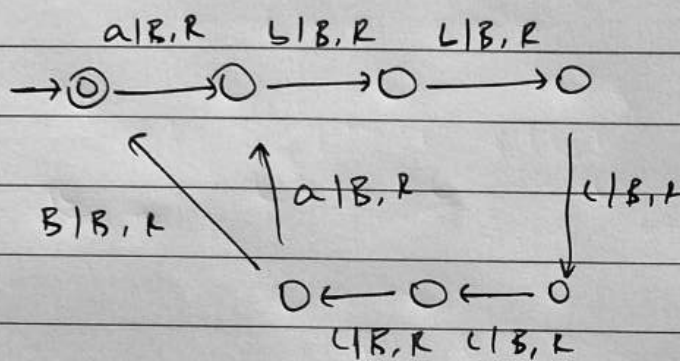 a|B, R b|B, R L|B, R
a|B, R c|B, R
B|B, R
c|B, R c|B, R